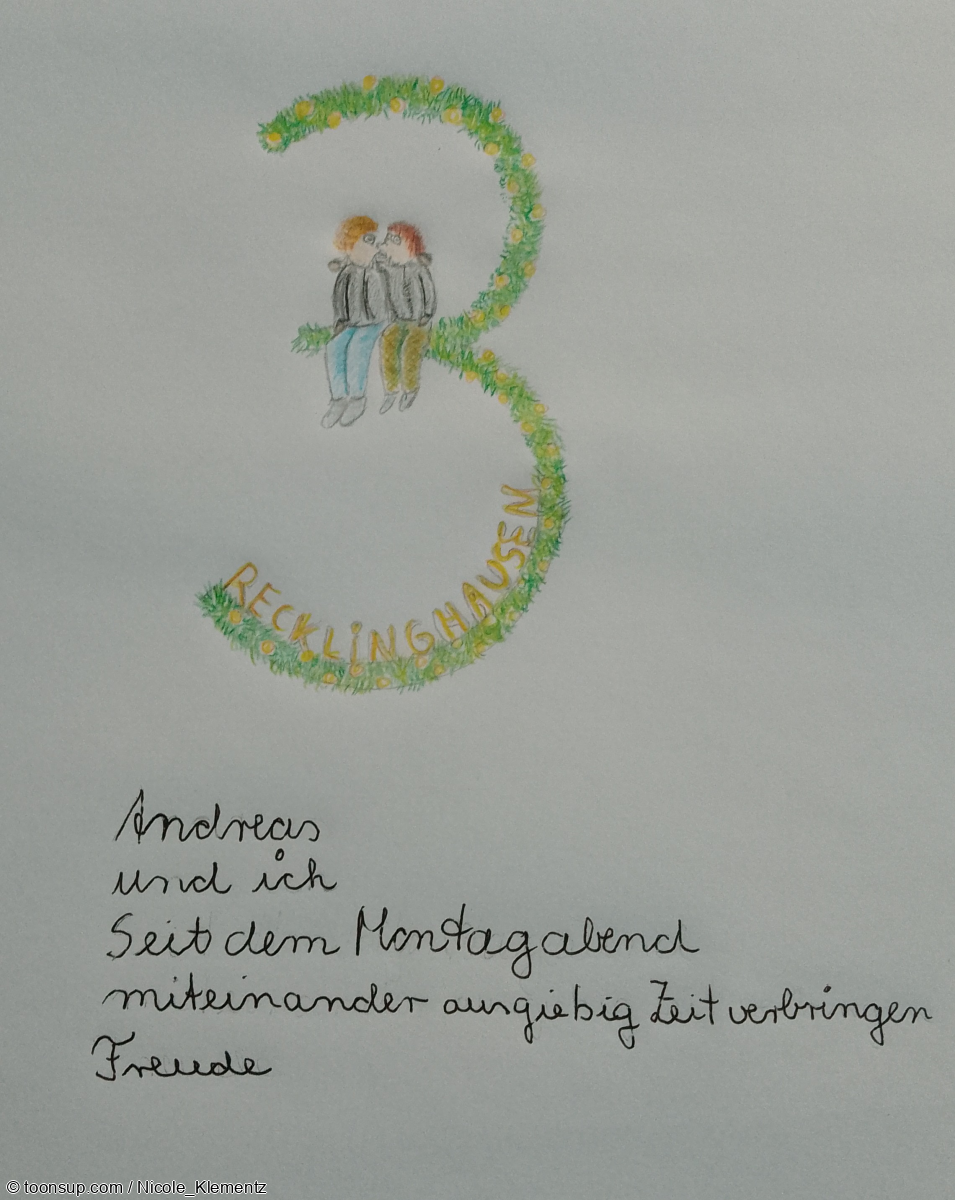 RECKLINGHAUSEN
Andreas
und ich
Seit dem Montagabend
miteinander ausgiebig Zeit verbringen
Freude
© toonsup.com / Nicole_Klementz